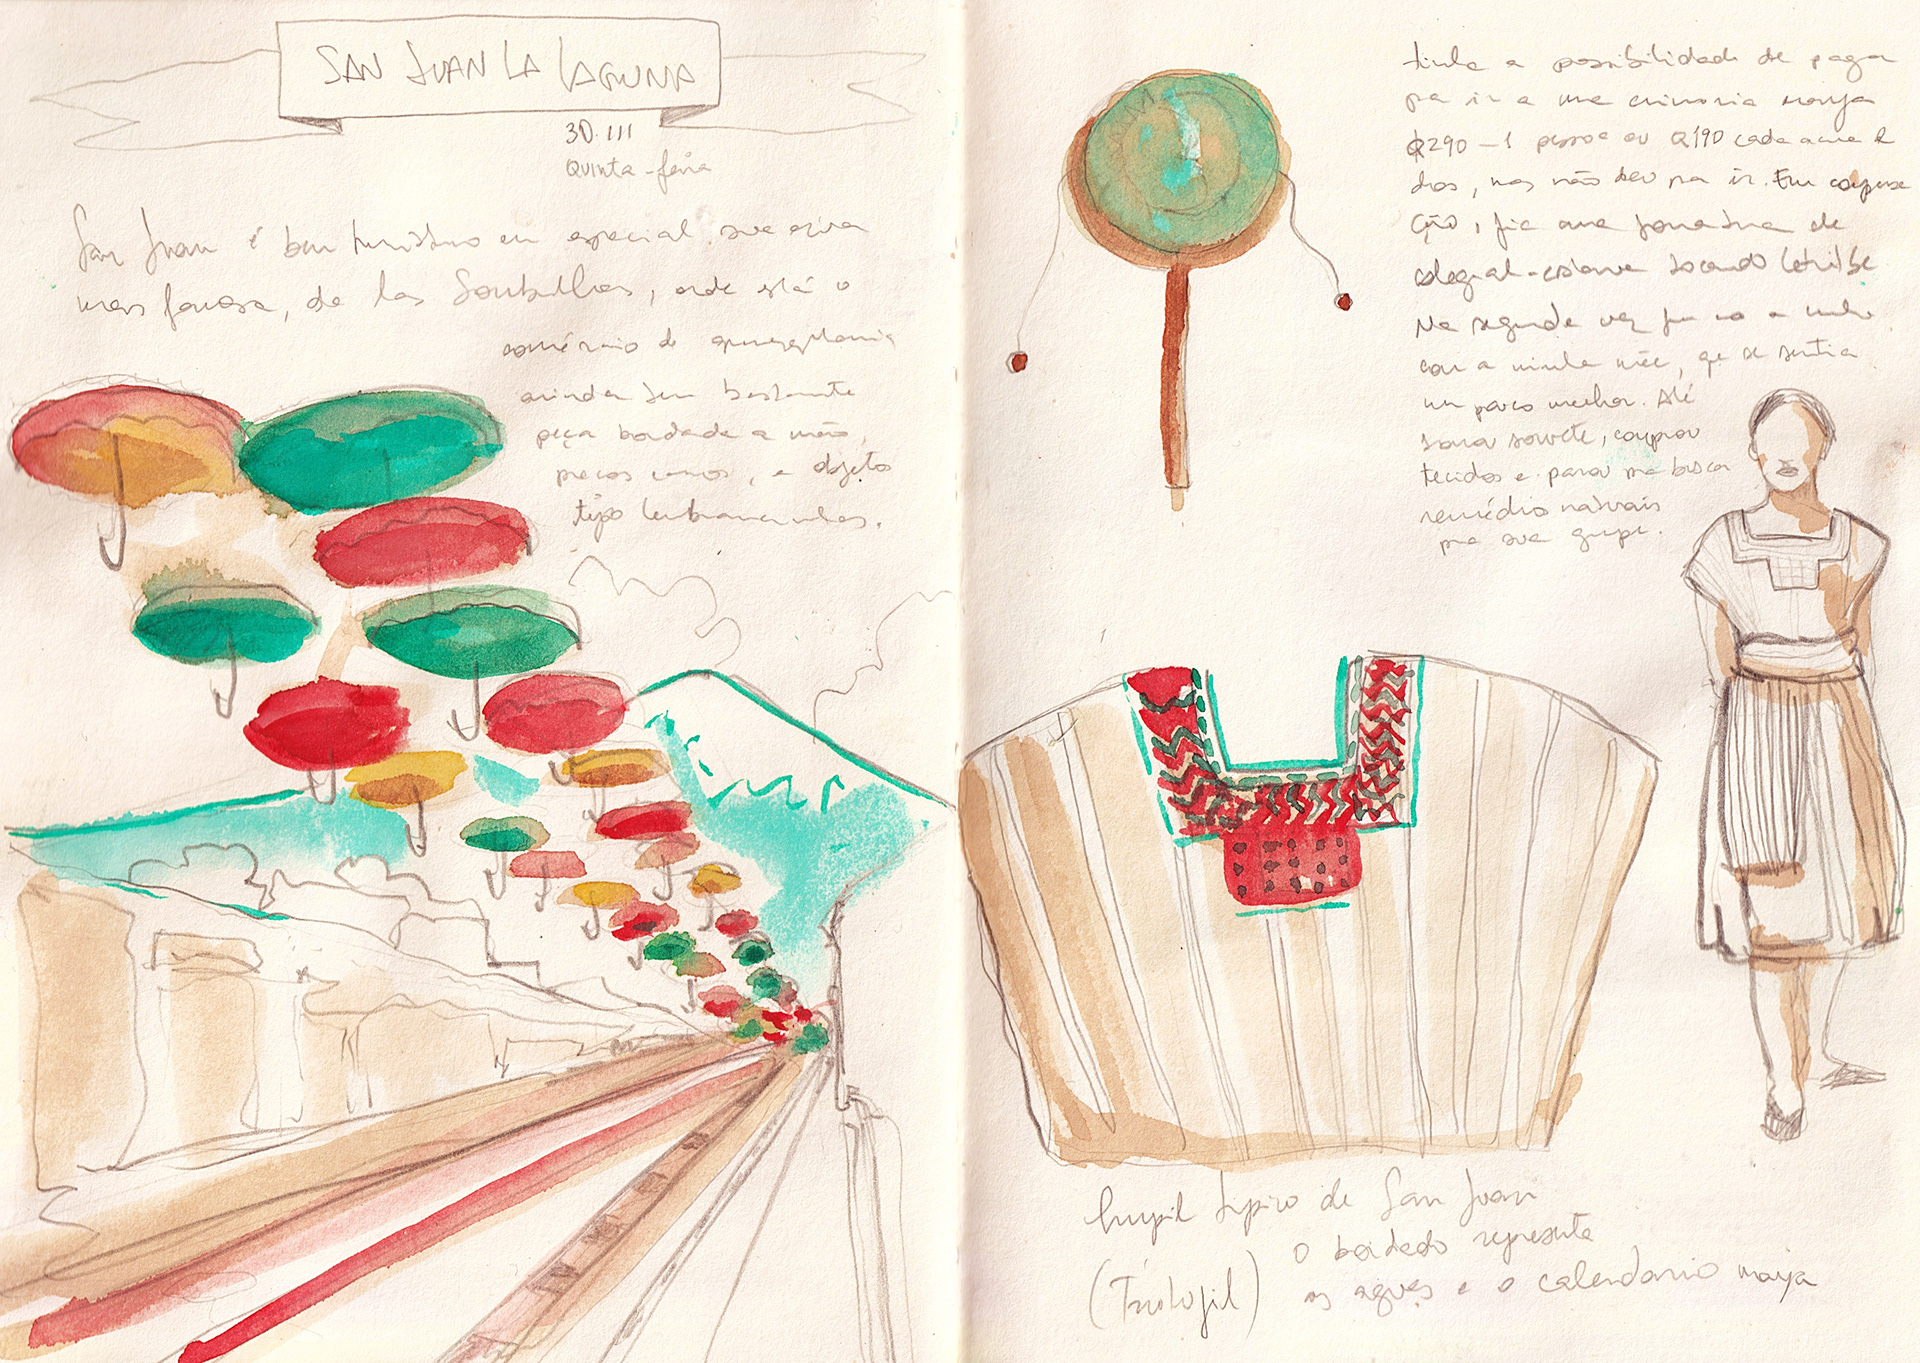 SAN JUAN LA LAGUNA
30.III
QUINTA-feira
San Juan é bem turístico em especial sua
mais famosa, de las Sombrillas, onde está o
comércio de
ainda tem bastante
peça bordada a mão,
preços caros, e objetos
tipo lembrancinhas.
tinha a possibilidade de pagar
pra ir a uma cerimonia maya
Q290 – 1 pessoa ou Q190 cada
dos, mas não deu pra ir. Em compensa
ção, fia uma de
colegial - estava tocando
Na segunda vez fui
com a minha mãe, que se sentia
um pouco melhor. Até
tomou sorvete, comprou
tecidos e parou pra buscar
remédio naturais
pra sua gripe.
huipil típico de San Juan
o bordado representa
as aguas e o calendario maya